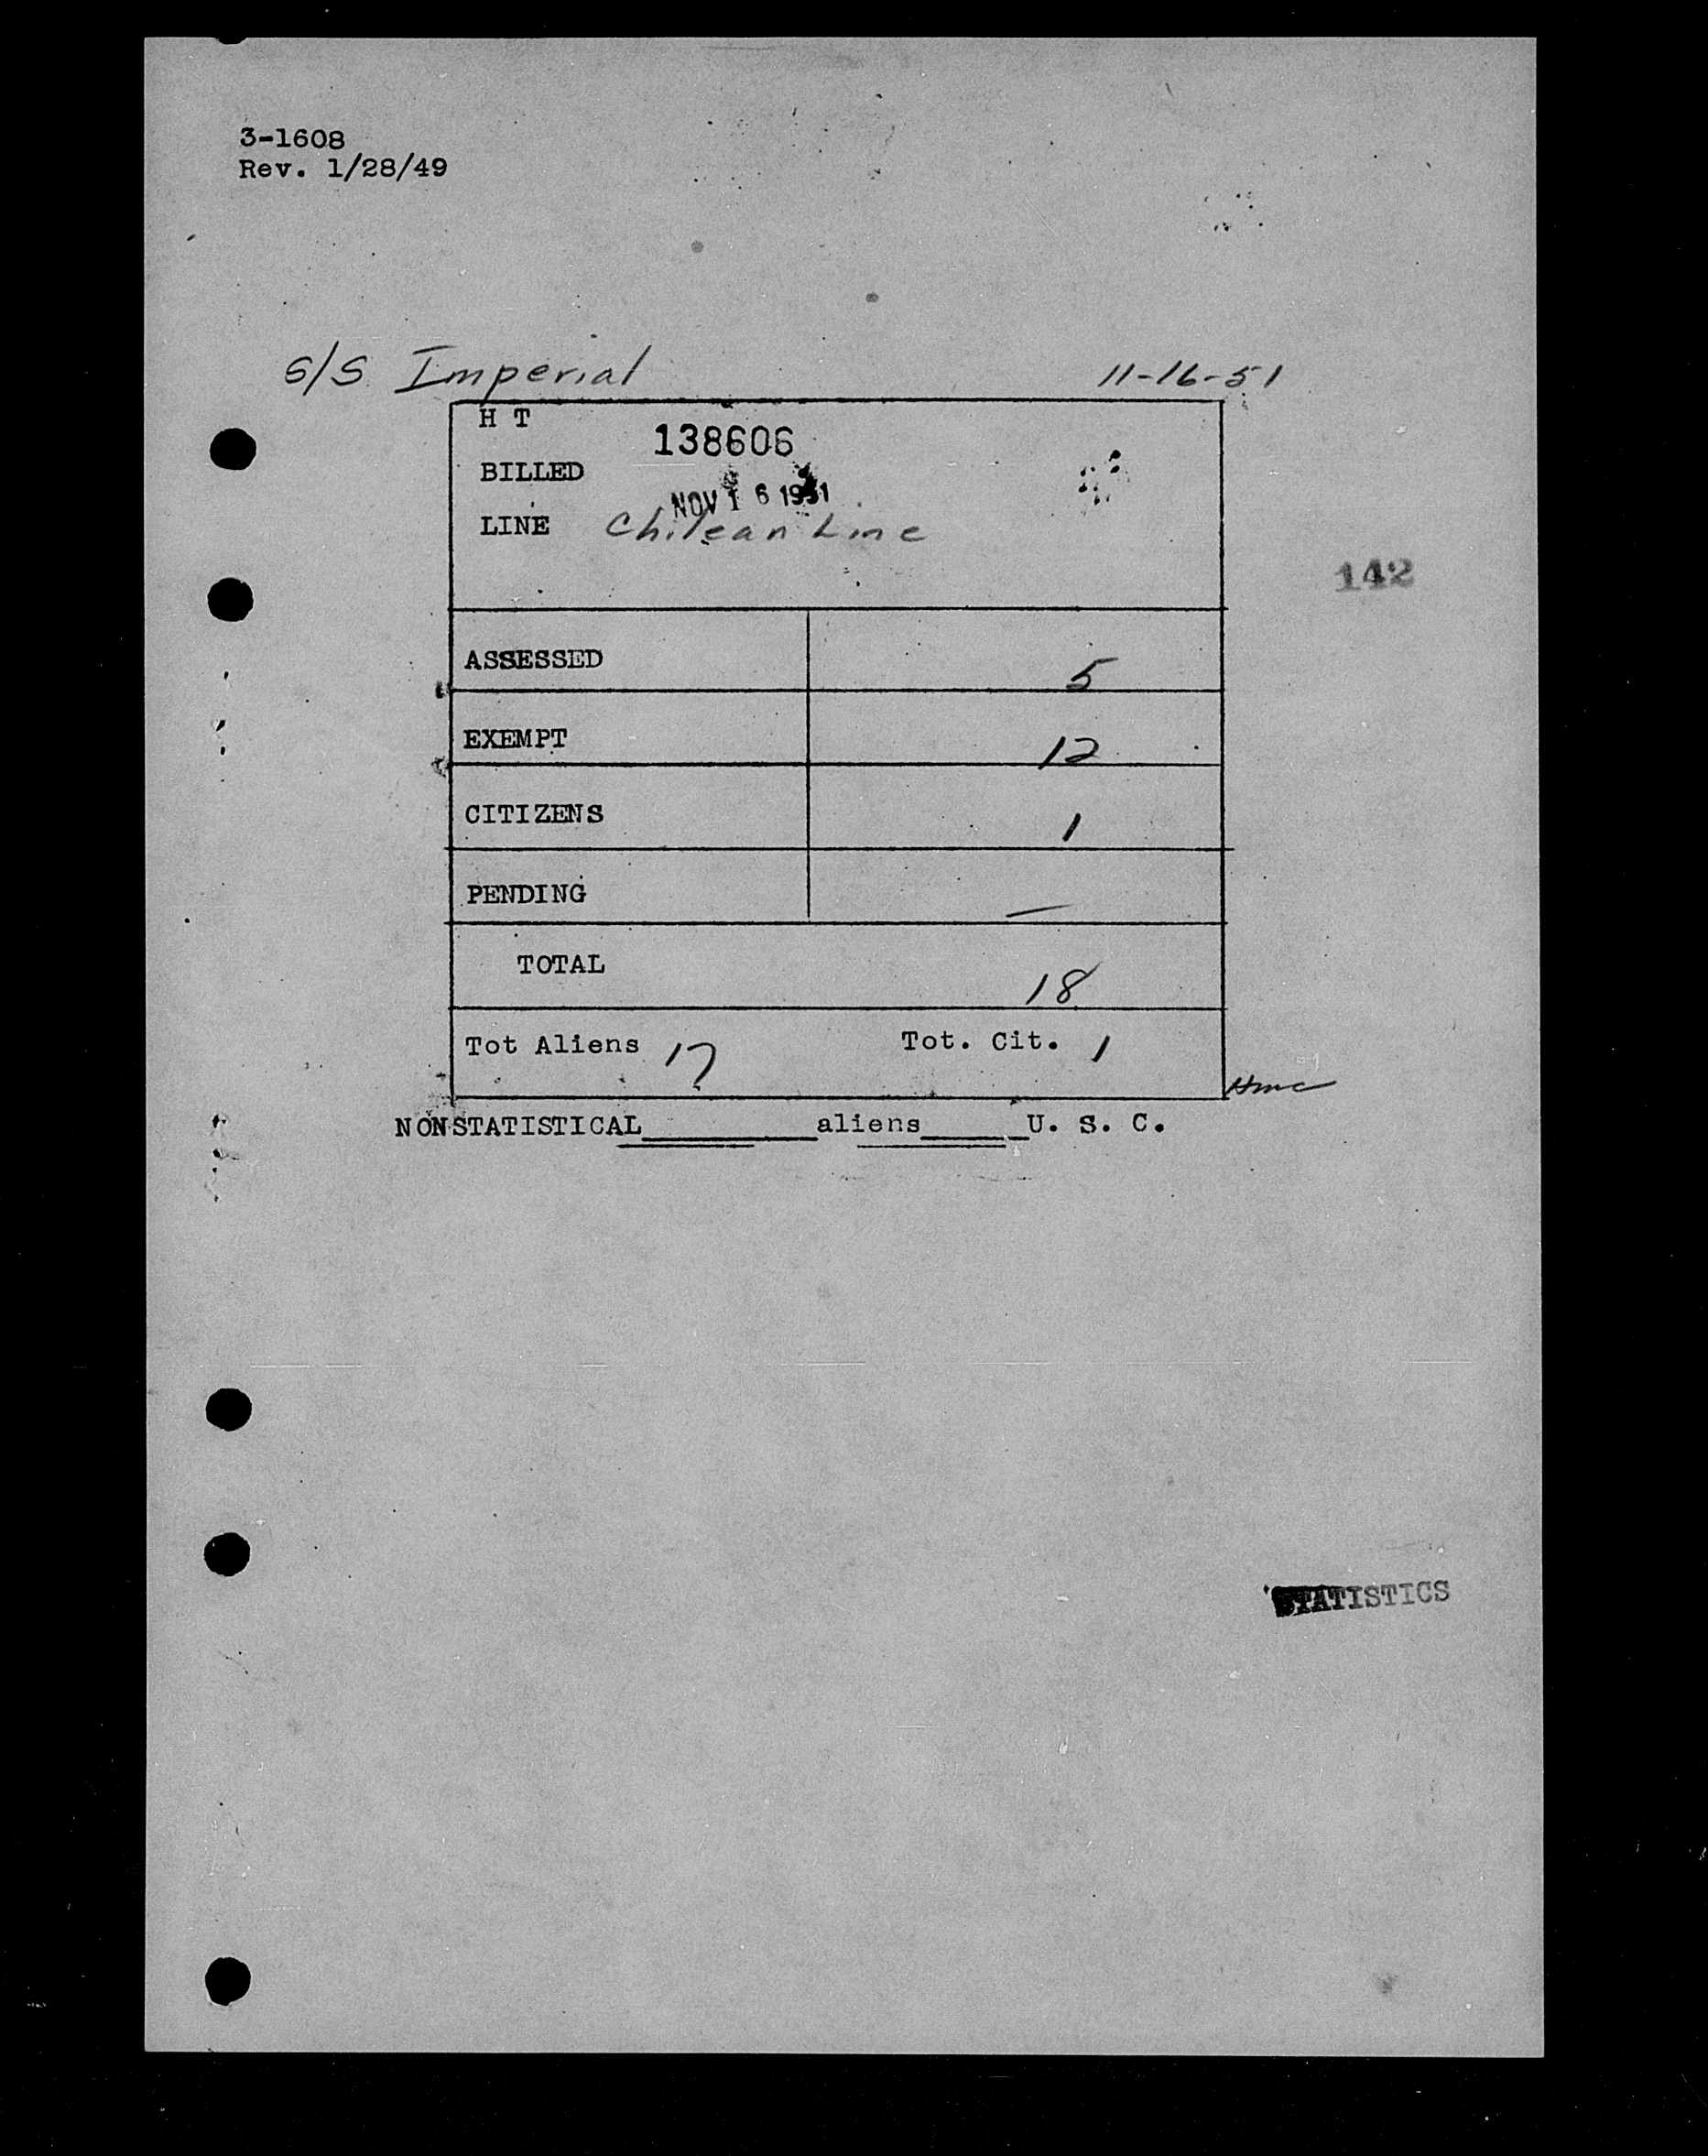 3-1608
Rev. 1/28/49
S/S Imperial 11-16-51
H T
138606
BILLED
NOV 16 1951
LINE Chilean Line
142
ASSESSED 5
EXEMPT 12
CITIZENS 1
PENDING —
TOTAL 18
Tot Aliens 17 Tot. Cit. 1
NONSTATISTICAL__________aliens______U. S. C.
STATISTICS